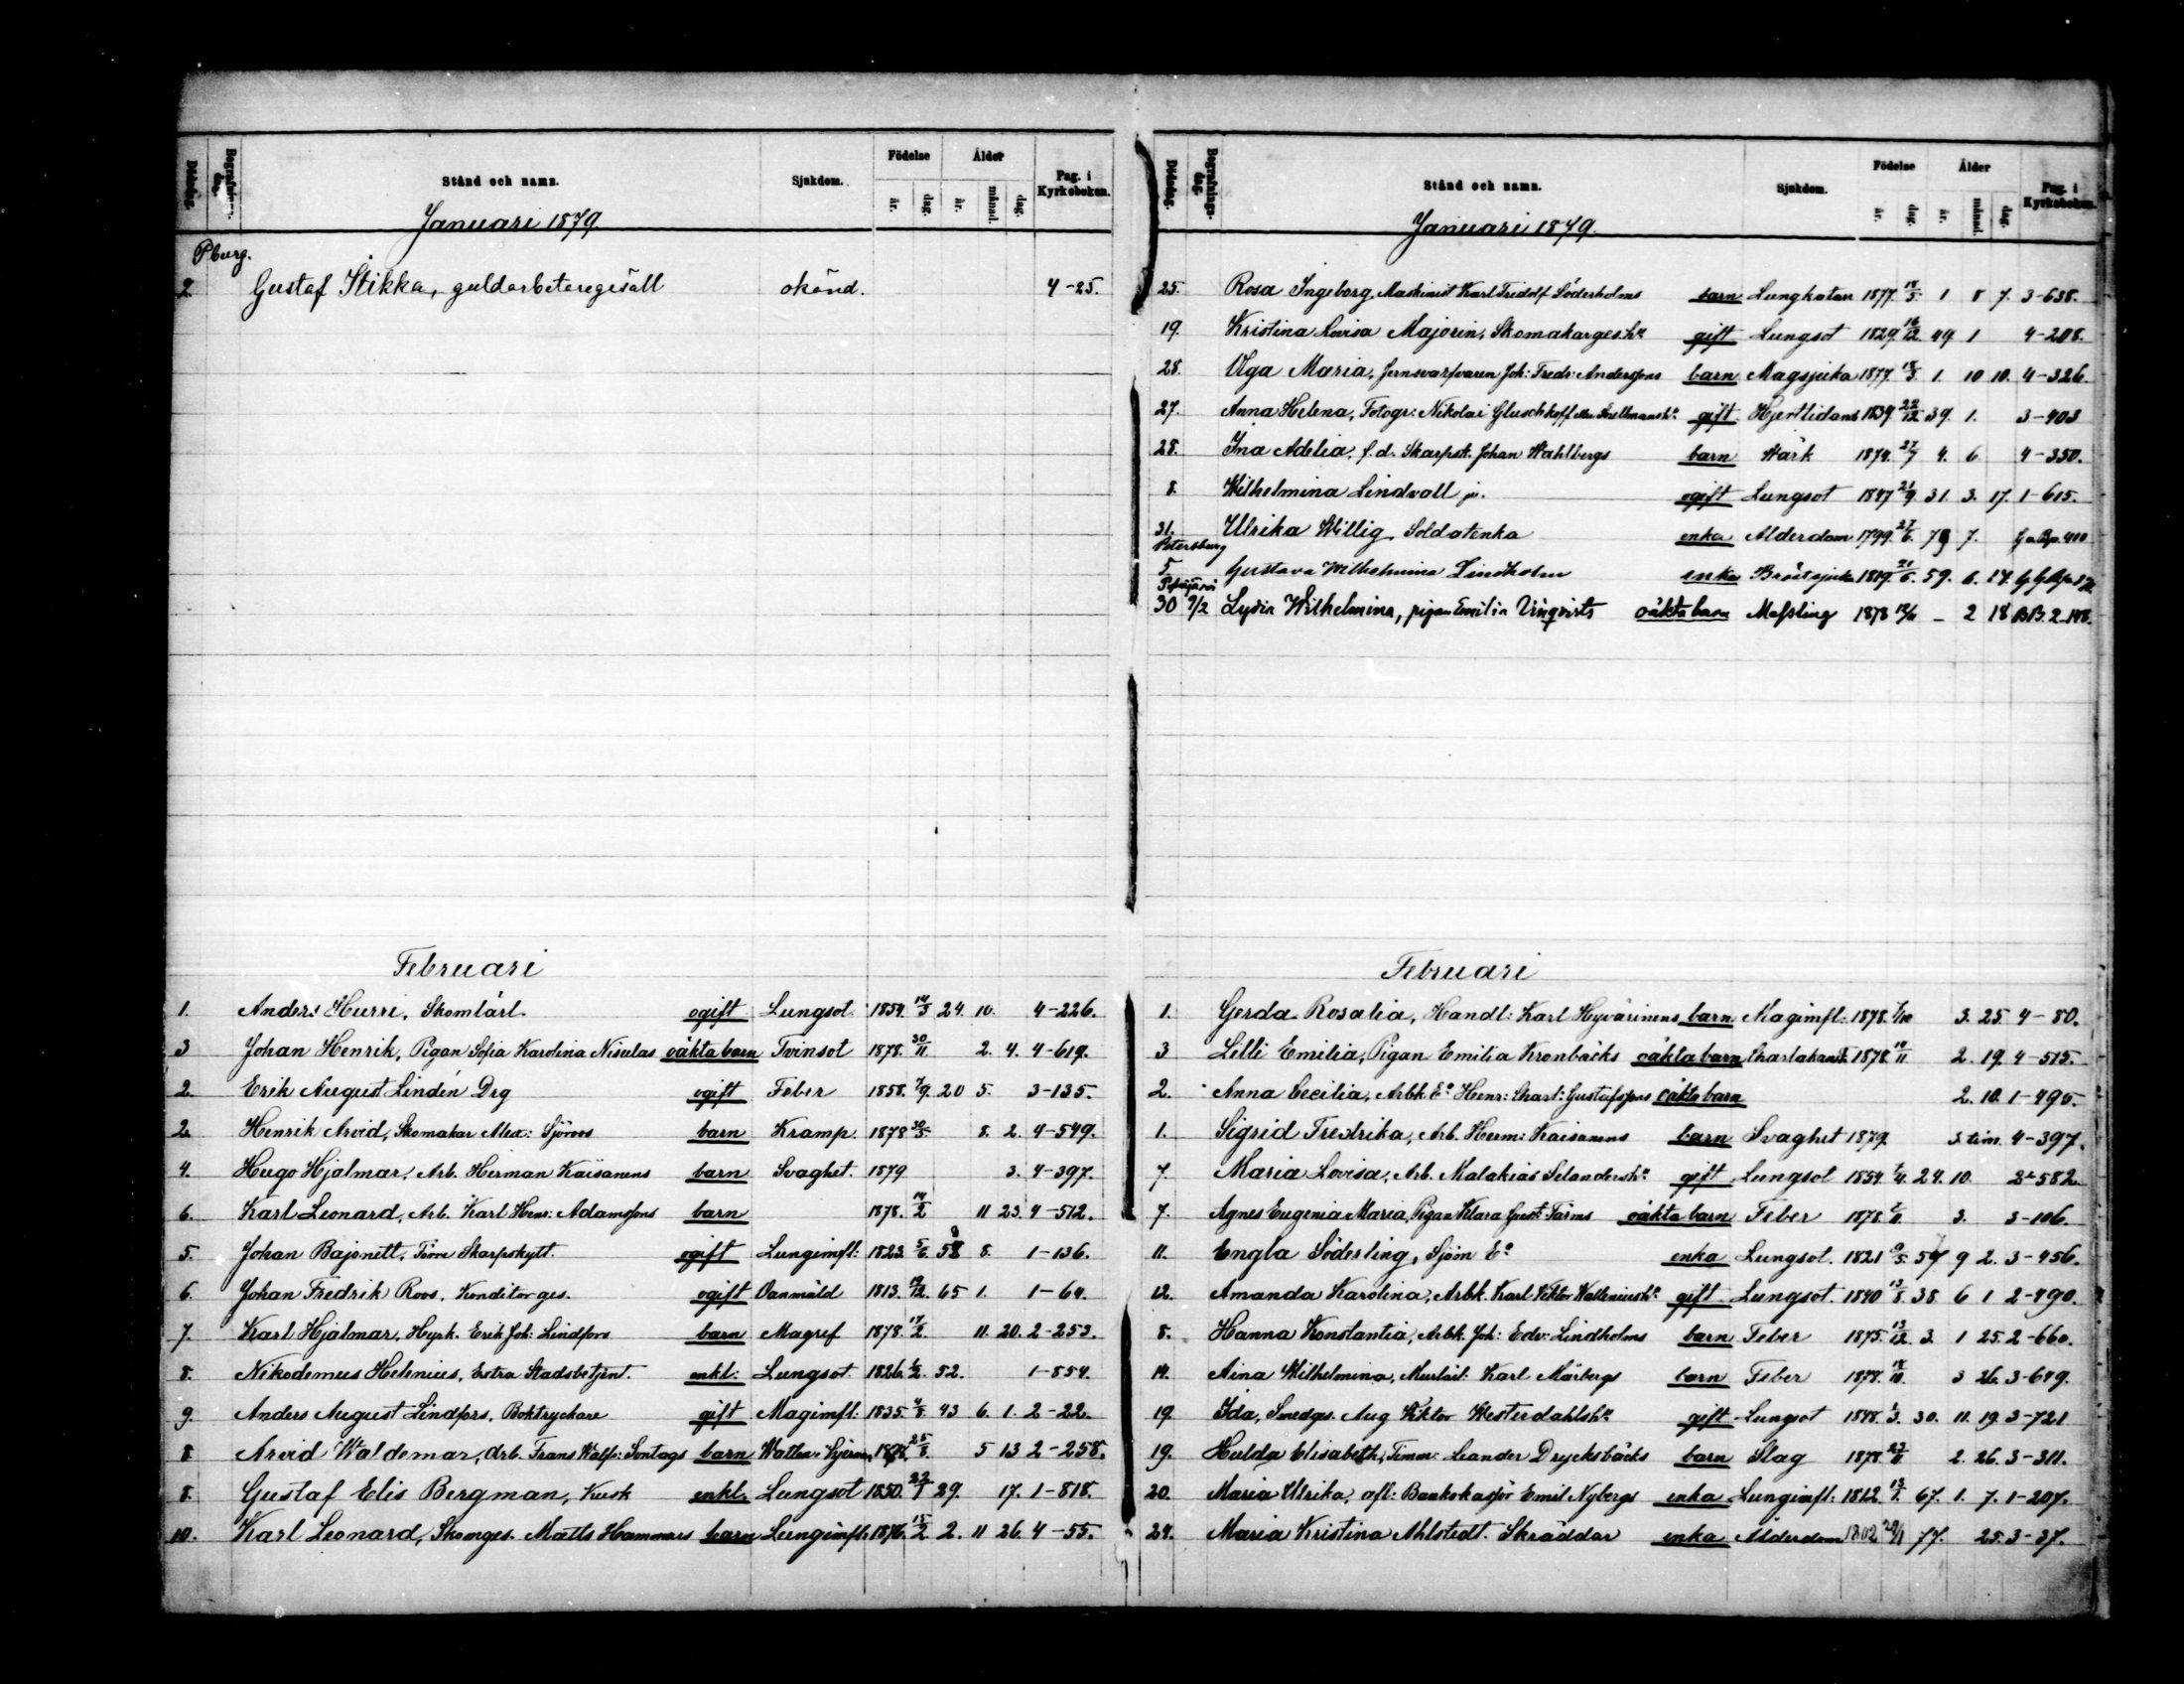 Dödsdag. Begrafnings-dag. Stånd och namn. Sjukdom. Födelse år. dag. Ålder år. månad. dag. Pag. i Kyrkoboken.
Januari 1879
Pburg.
2. Gustaf Stikka, guldarbetaregesäll okänd. 4-25.
Februari
1. Anders Hurri, Skomlärl. ogift Lungsot 1854. 14/3 24. 10. 4-226.
3 Johan Henrik, Pigan Sofia Karolina Nisulas oäkta barn Tvinsot 1878. 30/11 2. 4. 4-619.
2. Erik August Lindén Drg ogift Feber 1858. 7/9. 20 5. 3-135.
2. Henrik Arvid, Skomakar Alex: Sjöroos barn Kramp. 1878 30/5 8. 2. 4-549.
4. Hugo Hjalmar, Arb. Herman Kaisanens barn Svaghet. 1879 3. 4-397.
6. Karl Leonard, Arb. Karl Henr: Adamssons barn 1878. 14/2 11 23. 4-512.
5. Johan Bajonett, Skarpskytt. ogift Lungimfl: 1823. 5/6. 8. 1-136.
6. Johan Fredrik Roos, Konditorges. ogift Oanmäld 1813. 19/12. 65 1. 1-64.
7. Karl Hjalmar, Hyrk. Erik Joh: Lindfors barn Magref 1878. 17/2. 11. 20. 2-253.
8. Nikodemus Helenius, Extra Stadsbetjent. enkl: Lungsot 1826. 52. 1-854.
9. Anders August Lindfors, Boktryckare gift Magimfl: 1835. 43 6. 1. 2-22.
8. Arvid Waldemar, Arb. Frans Walfr: Sontags barn Watten i Hjernan 25/8. 5 13 2-258.
8. Gustaf Elis Bergman, Kusk enkl. Lungsot 1850. 29. 17. 1-818.
10. Karl Leonard, Skomges. Matts Hammares barn Lungimfl: 1876. 15/2 2. 11 26. 4-55.
Dödsdag. Begrafnings-dag. Stånd och namn. Sjukdom. Födelse år. dag. Ålder år. månad. dag. Pag. i Kyrkoboken.
Januari 1879.
25. Rosa Ingeborg, Maskinist Karl Fridolf Söderholms barn Lungkatarr 1877. 18/5. 1 8 7. 3-638.
19. Kristina Lovisa Majorin, Skomakarges.hu gift Lungsot 1829. 16/12. 49. 1 4-208.
28. Olga Maria, Jernsvarfvaren Joh: Fredr: Anderssons barn Magsjuka 1877. 18/3. 1. 10 10. 4-326.
27. Anna Helena, Fotogr: Nikolai Gluschkoff gift Hjertlidande 1839. 22/12 39. 1. 3-403
28. Ina Adelia, f.d. Skarpsk. Johan Wahlbergs barn Wärk 1874. 27/7 4. 6 4-350.
8. Wilhelmina Lindvall ogift Lungsot 1847 21/9. 31. 3. 17. 1-615.
31. Ulrika Willig, Soldatenka enka Alderdom 1799. 27/6. 79 7.
Petersburg
5. Gustava Wilhelmina Lindholm enka Bröstsjuka 1819. 21/6. 59. 6. 14.
30 9/2 Lydia Wilhelmina, pigan Emilia Vinqvists oäkta barn Messling 1878 12/11 - 2 18 BB. 2-148.
Februari
1. Gerda Rosalia, Handl: Karl Hyvärinens barn Magimfl: 1878. 7/10 3. 25. 4-80.
3 Lilli Emilia, Pigan Emilia Kronbäcks oäkta barn Skarlakansf. 1878. 2. 19. 4-515.
2. Anna Cecilia, Arbk. Ea Henr: Charl: Gustafssons oäkta barn 2. 10. 1-490.
1. Sigrid Fredrika, Arb. Herm: Kaisanens barn Svaghet 1879. 3 tim. 4-397.
7. Maria Lovisa, Arb. Malakias Selanders hu gift Lungsot 1854 24. 10. 2-582.
7. Agnes Eugenia Maria, Pigan Klara Gust: Tärms oäkta barn Feber 1878 3. 3-106.
11. Engla Söderling, Sjöm Ea enka Lungsot. 1821 57 9 2. 3-456.
12. Amanda Karolina, Arbk. Karl Viktor Wallenius hu gift Lungsot. 1840 13/8. 38 6 1 2-490.
8. Hanna Konstantia, Arbk. Joh: Edv: Lindholms barn Feber 1875. 13/12. 3. 1 25. 2-660.
14. Aina Wilhelmina, Murlärl: Karl Mårbergs barn Feber 1878. 18/10. 3 26. 3-649.
19. Ida, Smedges. Aug Viktor Westerdahls hu gift Lungsot 1848. 1/3. 30. 11. 19. 3-721
19. Hulda Elisabeth, Timm: Leander Drycksbäcks barn Slag 1878. 2. 26. 3-311.
20. Maria Ulrika, afl: Bankokassör Emil Nybergs enka Lungimfl: 1812. 13/1. 67. 1. 7. 1-207.
24. Maria Kristina Ahlstedt. Skräddar enka Ålderdom 1802 77. 25. 3-37.